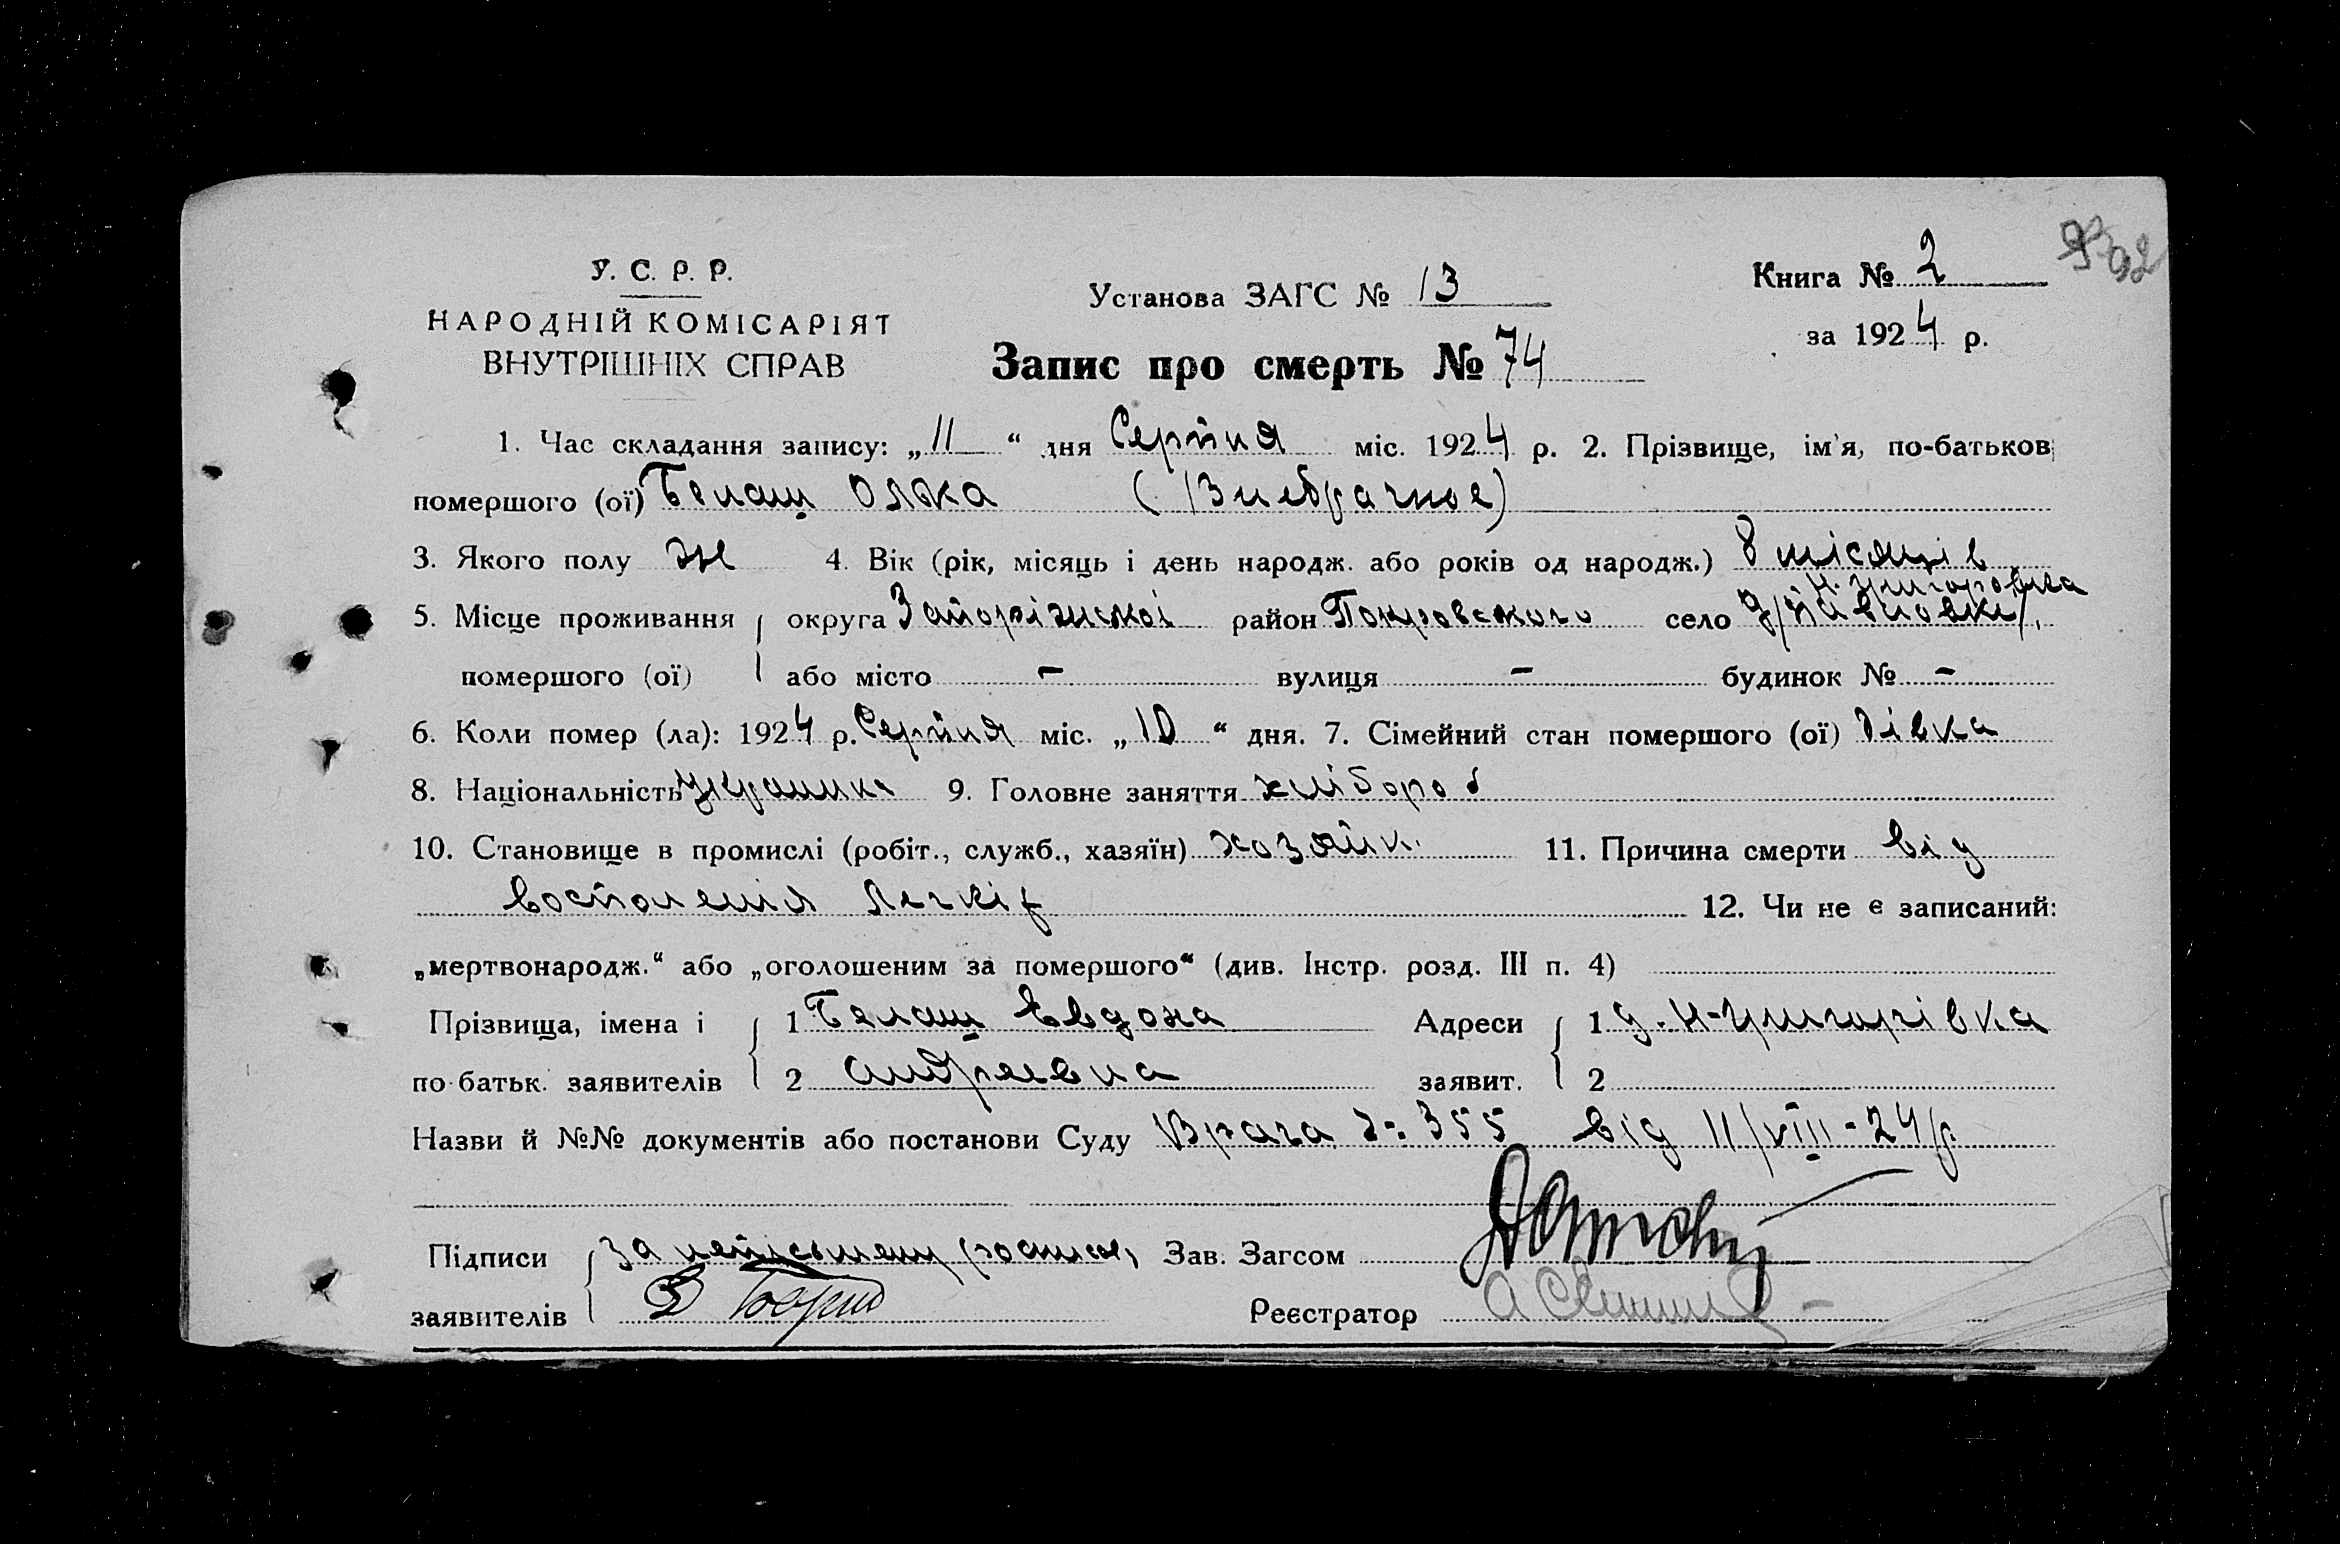 У. С. Р. Р.
НАРОДНІЙ КОМІСАРІЯТ
ВНУТРІШНІХ СПРАВ
Установа ЗАГС № 13
Книга № 2
за 1924 р.
Запис про смерть № 74
1. Час складання запису: „11“ дня Серпня міс. 1924 р. 2. Прізвище, ім'я, по-батькові
помершого (ої) Белаш Олка (Внебрачное)
3. Якого полу ж 4. Вік (рік, місяць і день народж. або років од народж.) 8 місяців
Н. Григоровка
5. Місце проживання округа Запоріжської район Покровского село
помершого (ої) або місто — вулиця — будинок № —
6. Коли помер (ла): 1924 р. Серпня міс. „10“ дня. 7. Сімейний стан помершого (ої) дівка
8. Національність Украинка 9. Головне заняття хлібороб
10. Становище в промислі (робіт., служб., хазяїн) хозяйк. 11. Причина смерти від
воспаленія легкіх 12. Чи не є записаний:
„мертвонародж.“ або „оголошеним за помершого“ (див. Інстр. розд. III п. 4)
Прізвища, імена і 1 Белаш Евдоха Адреси 1 д. Н-Григорівка
по-батьк. заявителів 2 Андреевна заявит. 2
Назви й №№ документів або постанови Суду Врача з: 355 від 11/VIII-24 р.
Підписи За непісьмену росписе, Зав. Загсом
заявителів Реєстратор